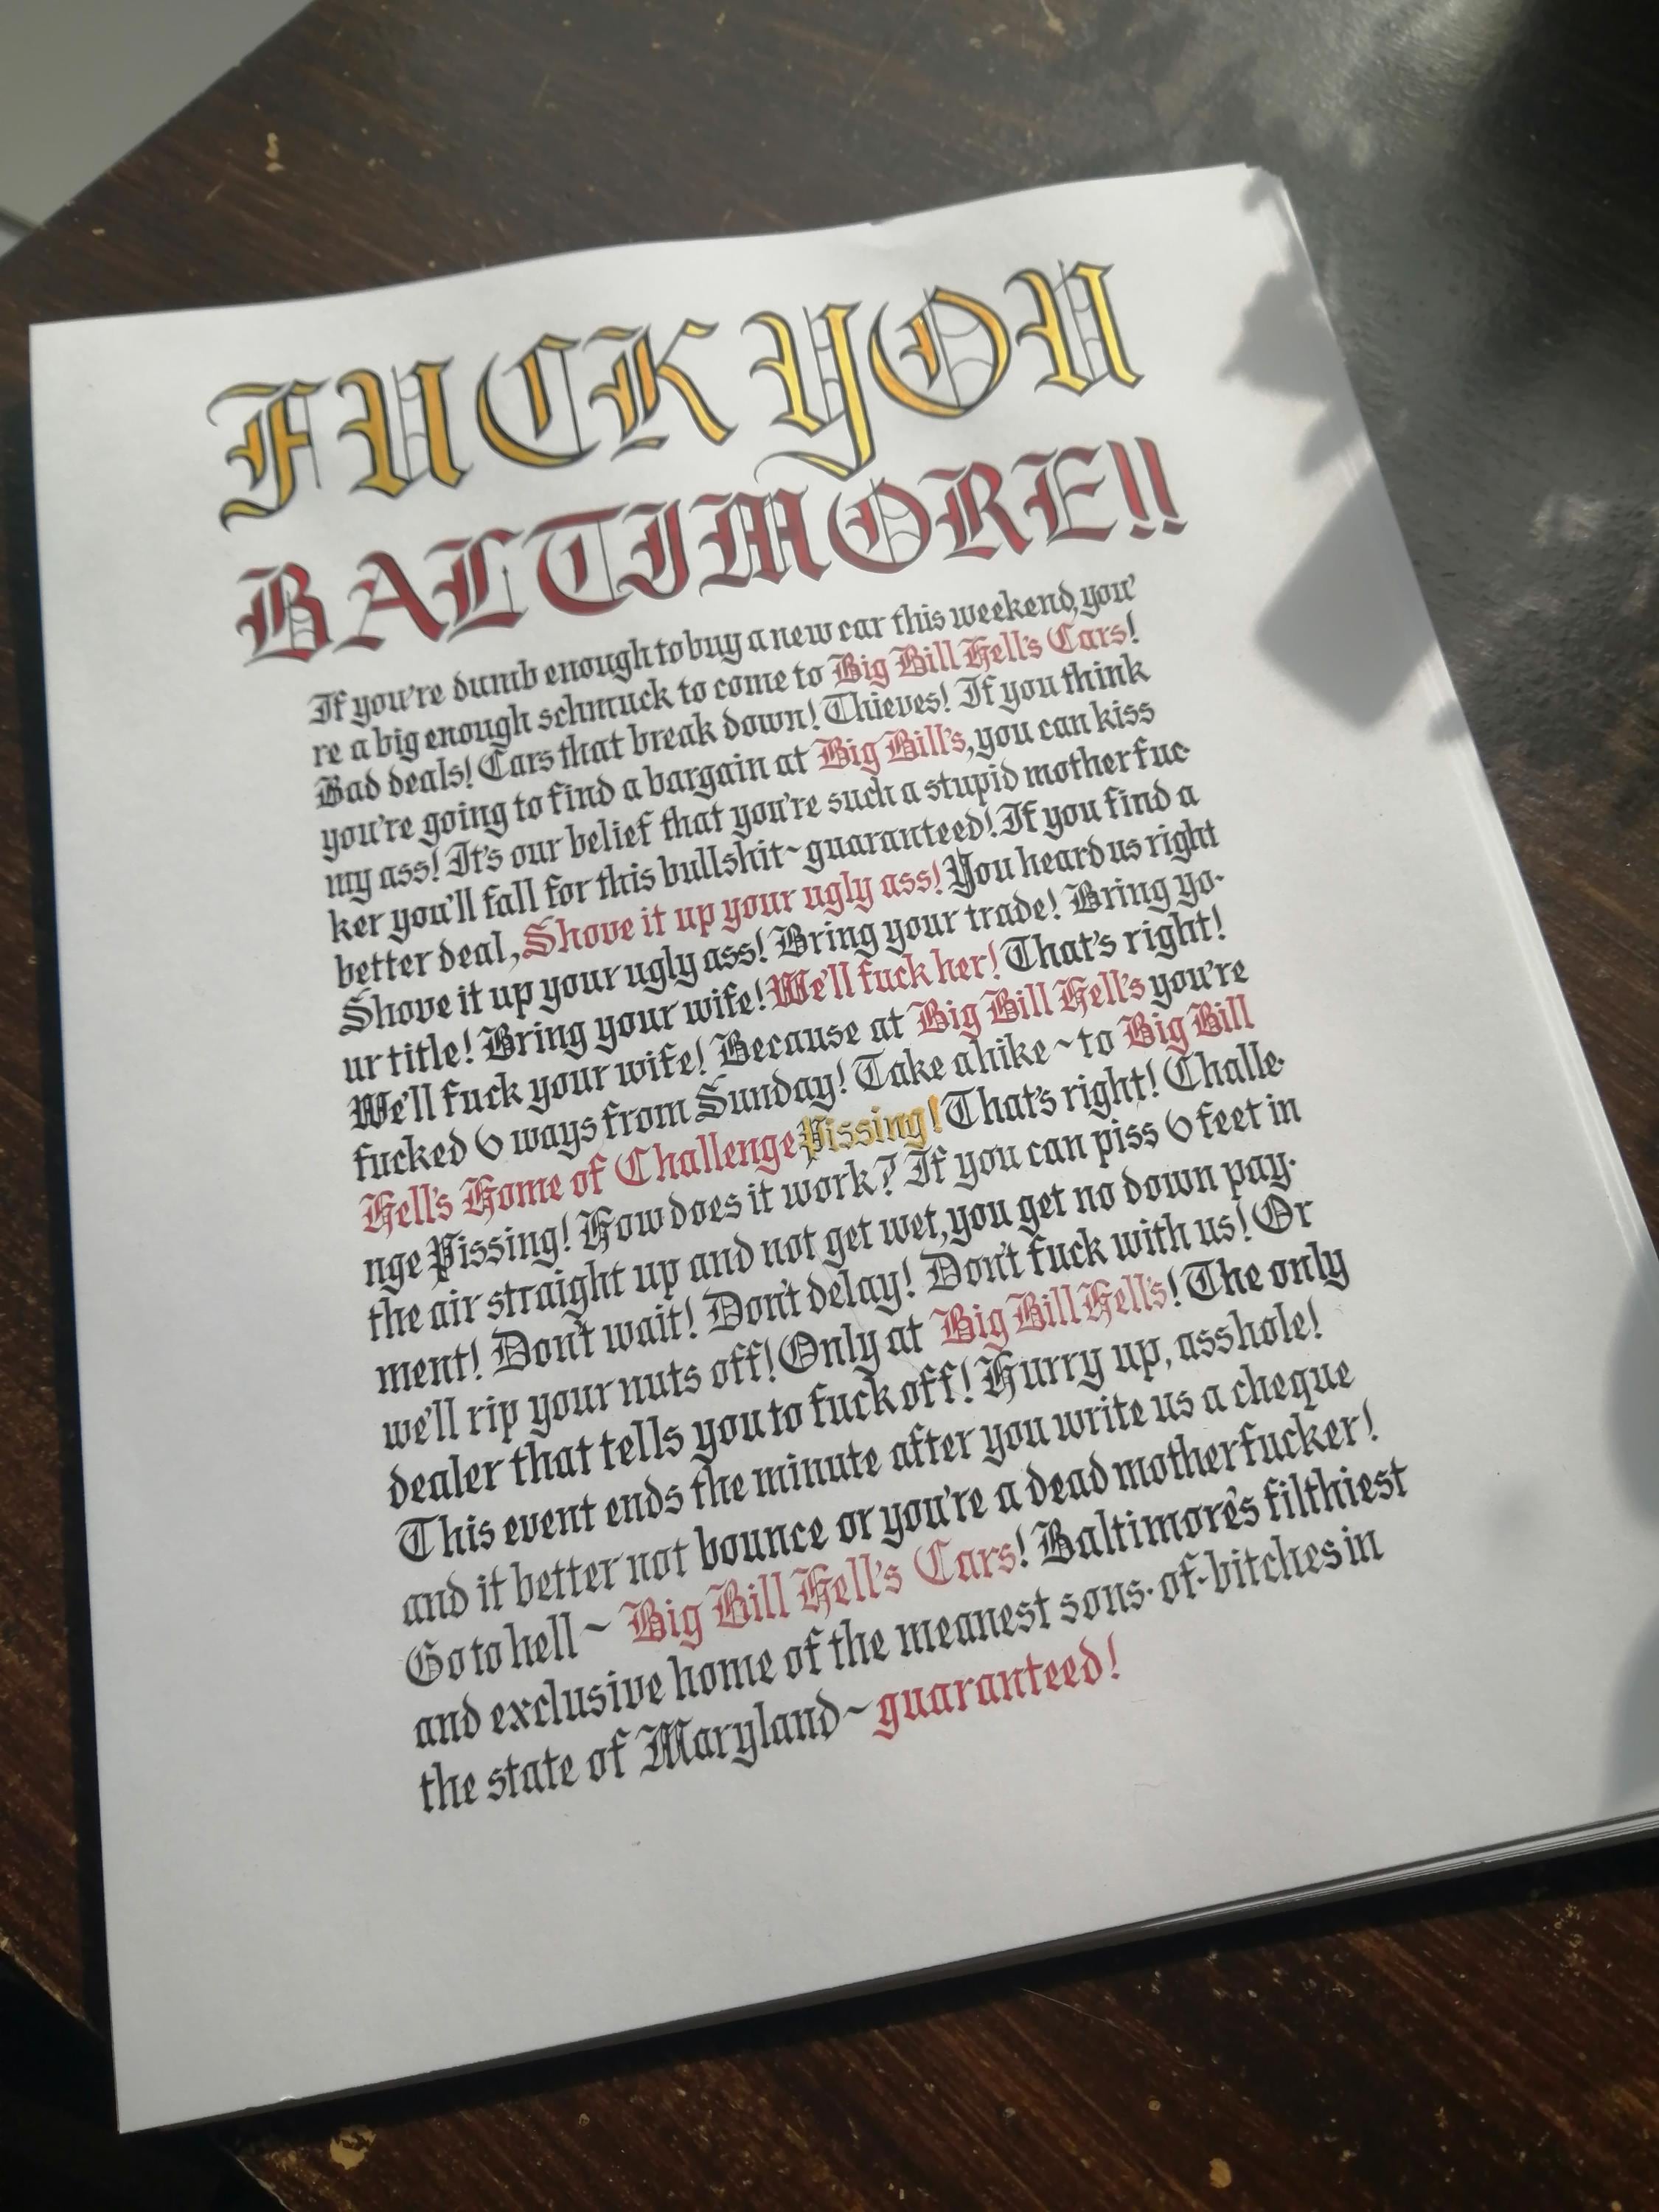 FUCK YOU
BALTIMORE!!
If you're dumb enough to buy a new car this weekend, you'
re a big enough schmuck to come to Big Bill Hell's Cars!
Bad deals! Cars that break down! Thieves! If you think
you're going to find a bargain at Big Bill's, you can kiss
my ass! It's our belief that you're such a stupid motherfuc-
ker you'll fall for this bullshit~guaranteed! If you find a
better deal, Shove it up your ugly ass! You heard us right
Shove it up your ugly ass! Bring your trade! Bring yo-
ur title! Bring your wife! We'll fuck her! That's right!
We'll fuck your wife! Because at Big Bill Hell's you're
fucked 6 ways from Sunday! Take a hike ~ to Big Bill
Hell's Home of Challenge Pissing! That's right! Challe-
nge Pissing! How does it work? If you can piss 6 feet in
the air straight up and not get wet, you get no down pay-
ment! Don't wait! Don't delay! Don't fuck with us! Or
we'll rip your nuts off! Only at Big Bill Hell's! The only
dealer that tells you to fuck off! Hurry up, asshole!
This event ends the minute after you write us a cheque
and it better not bounce or you're a dead motherfucker!
Go to hell ~ Big Bill Hell's Cars! Baltimore's filthiest
and exclusive home of the meanest sons-of-bitches in
the state of Maryland~guaranteed!